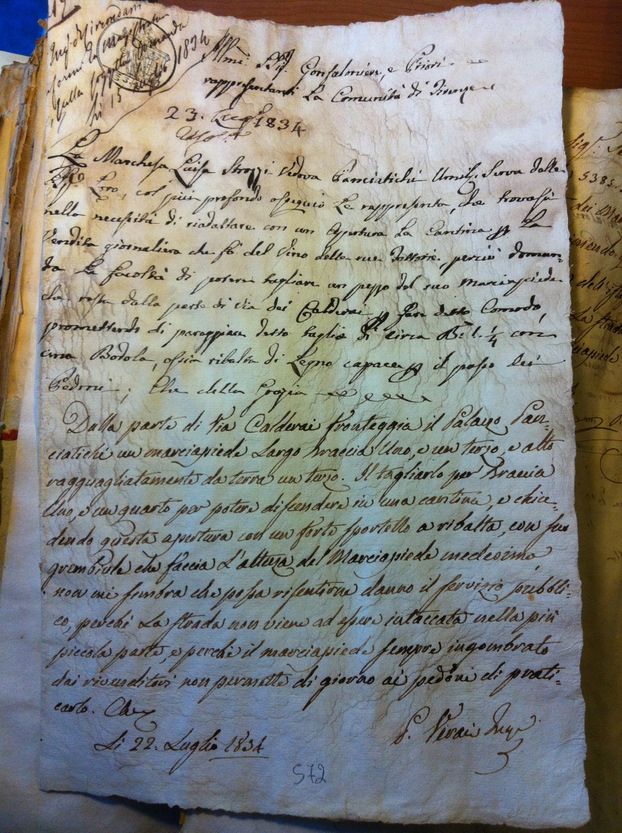 Ill.mi Sig.ri Gonfaloniere, e Priori
rappresentanti La Comunità di Firenze
23. Luglio 1834
La Marchesa Luisa Strozzi Vedova Panciatichi Umil. Serva delle
Loro, col più profondo ossequio Le rappresenta, che trovasi
nella necessità di riadattare con un Apertura La Cantina p La
Vendita giornaliera che fà del Vino delle sue fattorie, perciò doman-
da La facoltà di potere tagliare un pezzo del suo Marciapiede
dalla parte di Via dei Calderai p fare detto Comodo,
promettendo di detto taglio di circa B. 1. 1/4 con
una Bodola, ossia ribalta di Legno capace p il passo dei
Pedoni; Che della Grazia
Dalla parte di Via Calderai fronteggia il Palazzo Pan-
ciatichi un marciapiede Largo Braccia Uno, e un terzo, e alto
ragguagliatamente da terra un terzo. Il tagliarlo per Braccia
Uno, e un quarto per potere discendere in una cantina, e chiu-
dendo questa apertura con un forte sportello a ribalta, con
che faccia L'altezza del Marciapiede medesimo,
non mi sembra che possa risentirne danno il servizio pubbli-
co, perchè La strada non viene ad essere intaccata nella più
piccola parte, e perchè il marciapiede sempre ingombrato
dai rivenditori non permette di giorno ai pedoni di prati-
carlo. Che
Li 22. Luglio 1834
572